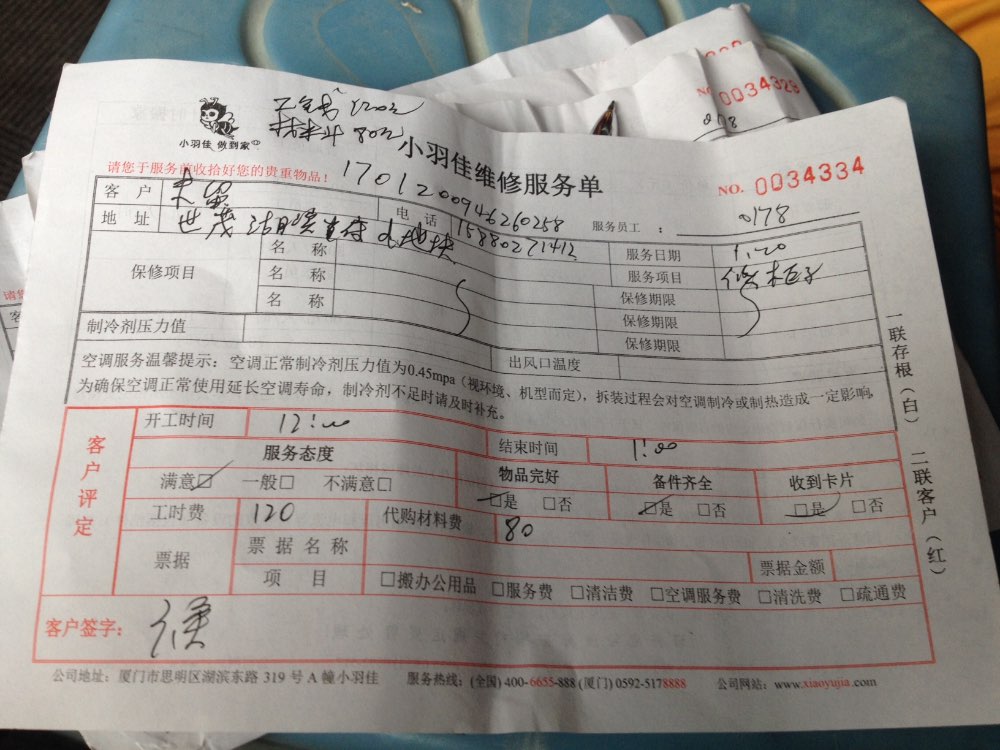 小羽佳 做到家
120元
80元
小羽佳维修服务单
NO. 0034334
NO 0034329
请您于服务前收拾好您的贵重物品!
1701200946260258
客户
电话 15880271412
服务员工： 0178
地址 世茂
保修项目
名称
服务日期 1.20
名称
服务项目 修柜子
名称
保修期限
保修期限
保修期限
制冷剂压力值
出风口温度
空调服务温馨提示：空调正常制冷剂压力值为0.45mpa（视环境、机型而定），拆装过程会对空调制冷或制热造成一定影响,
为确保空调正常使用延长空调寿命，制冷剂不足时请及时补充。
客户评定
开工时间 12:00
结束时间 1:00
服务态度
物品完好
备件齐全
收到卡片
满意☑ 一般□ 不满意□
☑是 □否
☑是 □否
☑是 □否
工时费 120
代购材料费 80
票据
票据名称
票据金额
项目
□搬办公用品 □服务费 □清洁费 □空调服务费 □清洗费 □疏通费
客户签字：
一联存根（白）
二联客户（红）
公司地址：厦门市思明区湖滨东路 319 号 A 幢小羽佳 服务热线：(全国) 400-6655-888 (厦门) 0592-5178888 公司网站：www.xiaoyujia.com